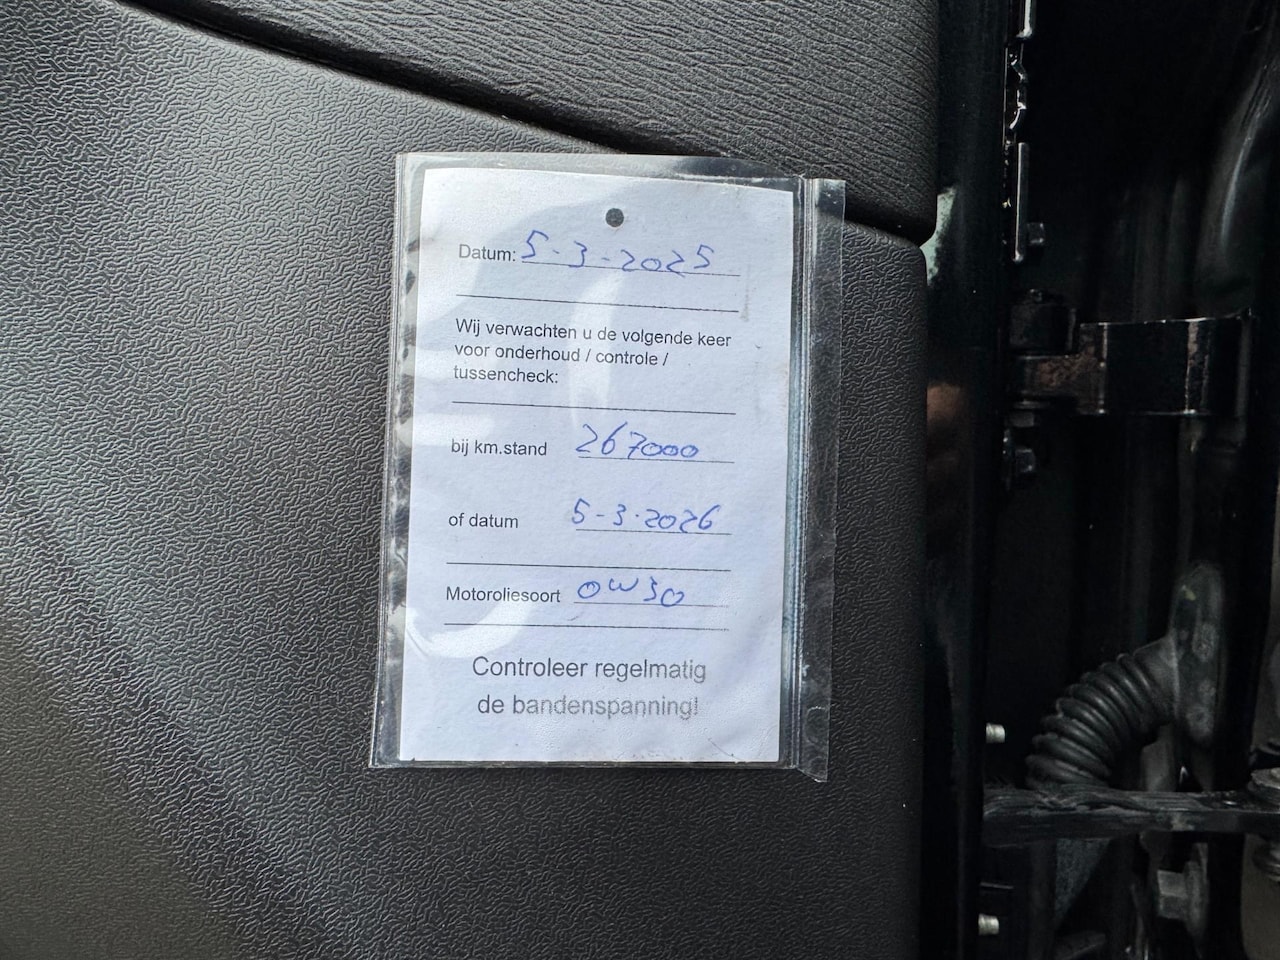 Datum: 5-3-2025
Wij verwachten u de volgende keer
voor onderhoud / controle /
tussencheck:
bij km.stand 267000
of datum 5-3-2026
Motoroliesoort 0W30
Controleer regelmatig
de bandenspanning!